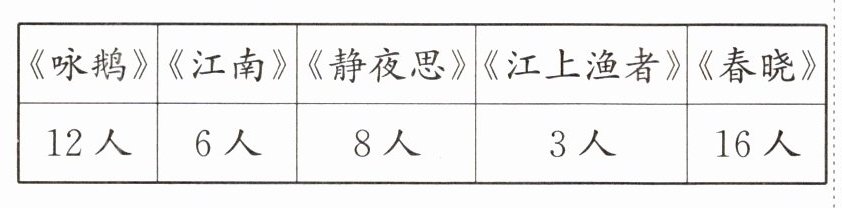 《咏鹅》 《江南》 《静夜思》 《江上渔者》 《春晓》
12人 6人 8人 3人 16人